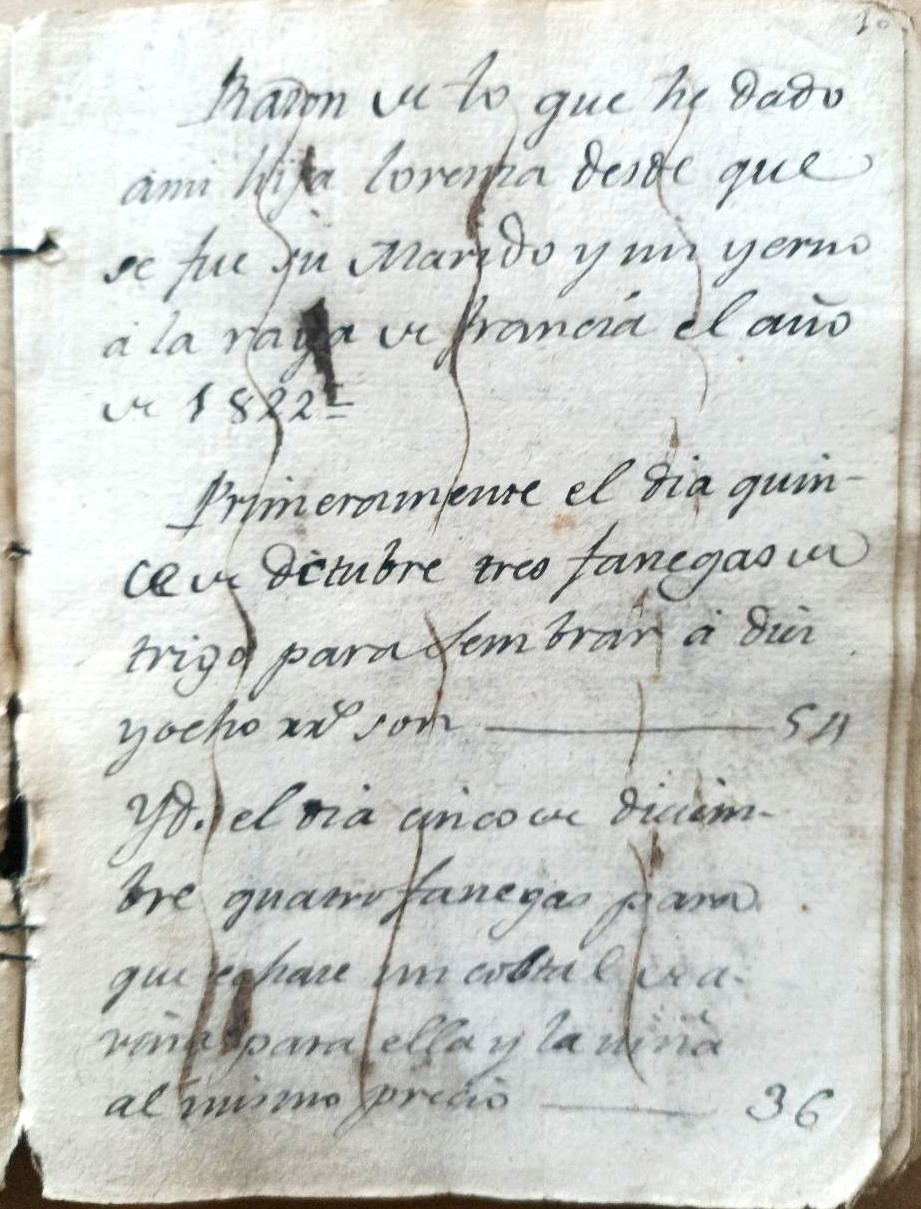 10
Razon de lo que he dado
ami hija lorenza desde que
se fue su Marido y mi yerno
a la raya de francia el año
de 1822=
Primeramente el dia quin-
ce de Octubre tres fanegas de
trigo para sembrar á diez
yocho rr.s son — 54
Yd. el dia cinco de diciem-
bre quatro fanegas para
que echase un costal de a-
rina para ella y la niña
al mismo precio — 36